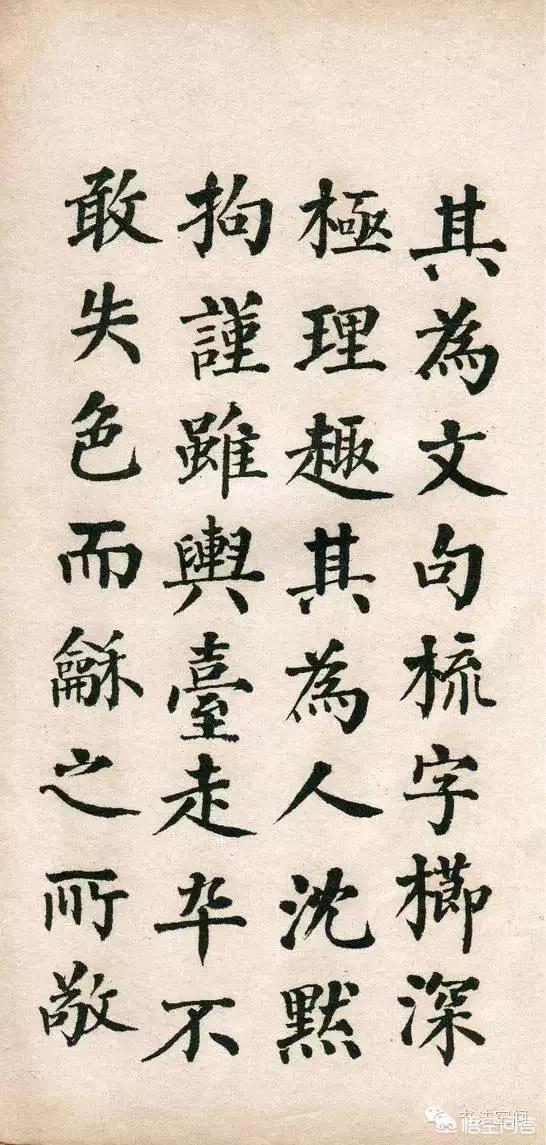 其為文句梳字櫛深
極理趣其為人沈默
拘謹雖輿臺走卒不
敢失色而龢之所敬
悟空问答